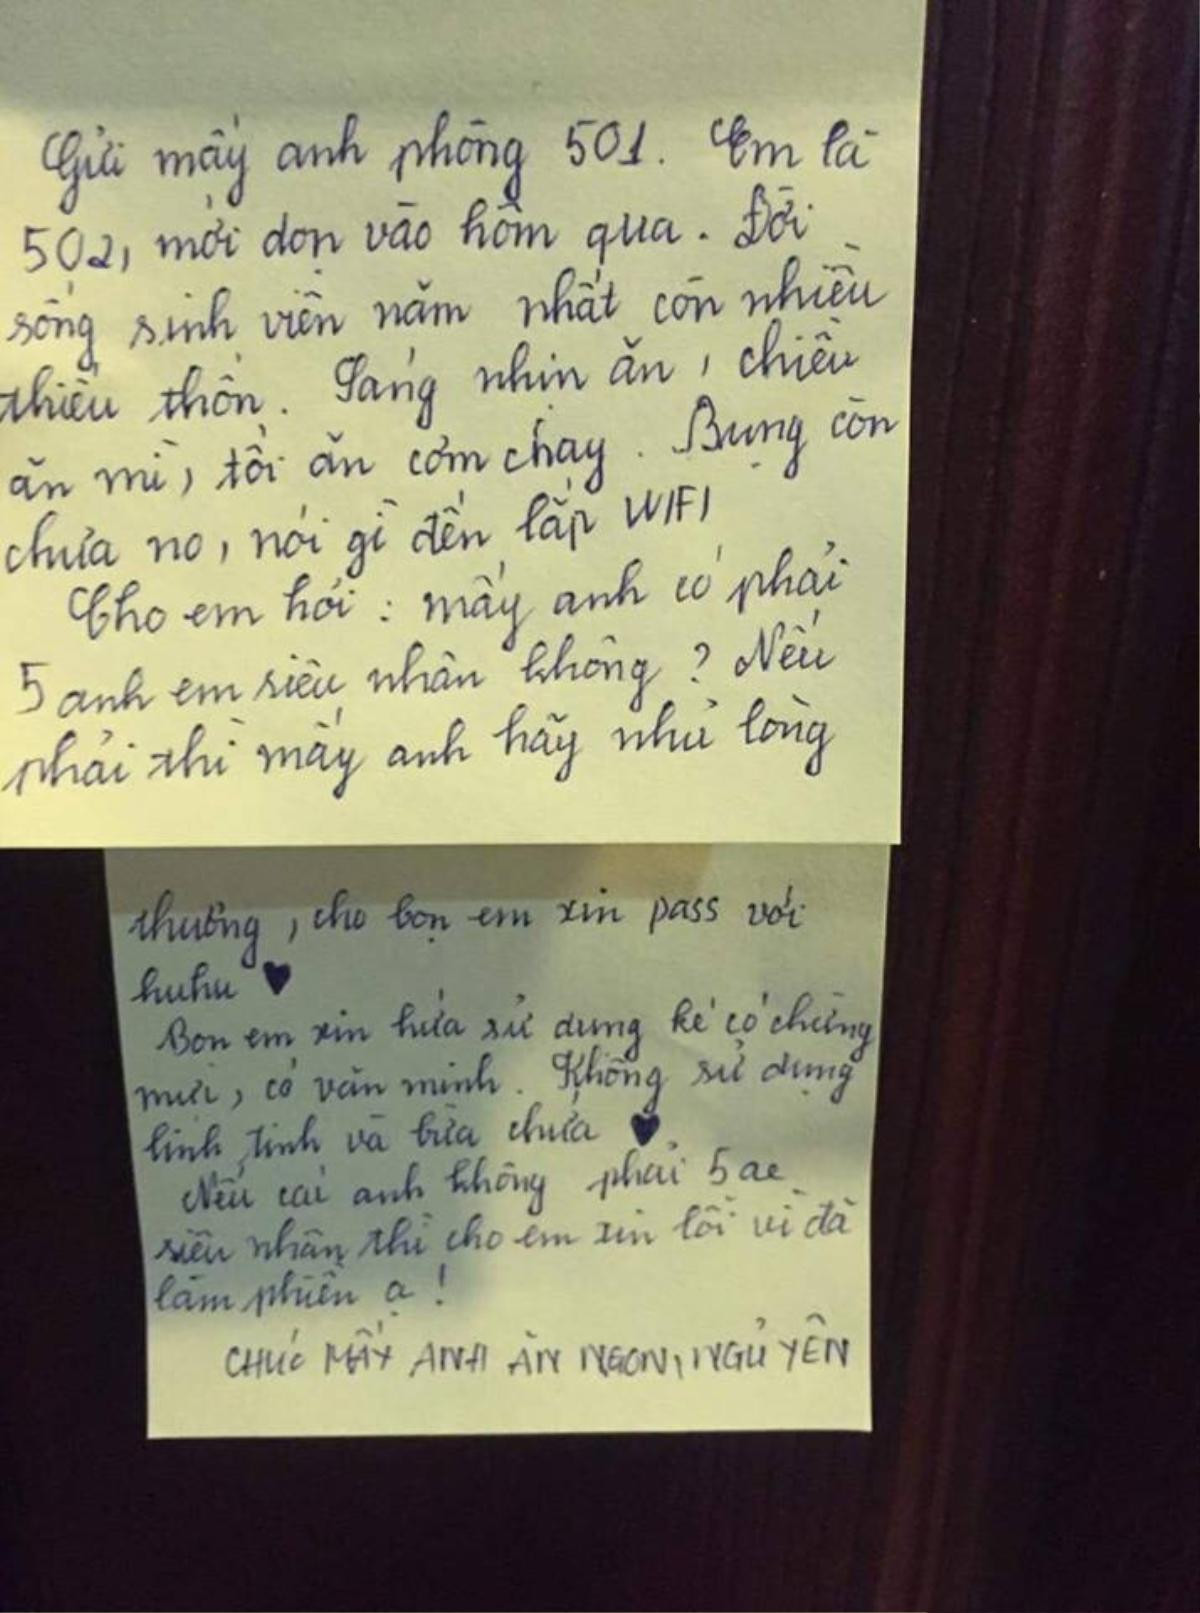 Gửi mấy anh phòng 501. Em là
502, mới dọn vào hôm qua. Đời
sống sinh viên năm nhất còn nhiều
thiếu thốn. Sáng nhịn ăn, chiều
ăn mì, tối ăn cơm cháy. Bụng còn
chưa no, nói gì đến lắp WIFI
Cho em hỏi: mấy anh có phải
5 anh em siêu nhân không? Nếu
phải thì mấy anh hãy nhủ lòng
thương, cho bọn em xin pass với
huhu ♥
Bọn em xin hứa sử dụng kế có chừng
mực, có văn minh. Không sử dụng
linh tinh và bừa chứa ♥
Nếu các anh không phải 5 ae
siêu nhân thì cho em xin lỗi vì đã
làm phiền ạ!
CHÚC MẤY ANH ĂN NGON, NGỦ YÊN